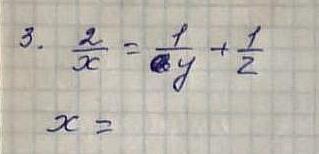 3. 2/x = 1/y + 1/z
x =